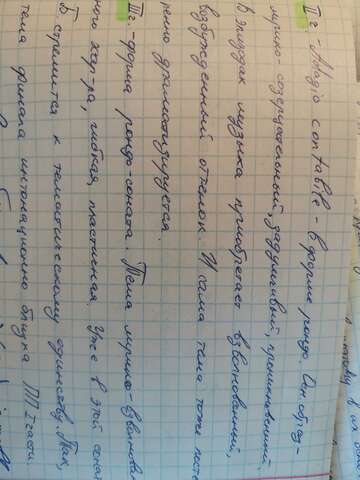 II ч. - Adagio contabile - в форме рондо. Осн. образ -
лирико-созерцательный, задумчивый, проникновенный.
В эпизодах музыка приобретает взволнованный,
возбужденный оттенок. И сама тема тоже посте
пенно драматизируется.
III ч. - форма рондо-соната. Тема лирико-взволнован
ного хар-ра, гибкая, пластичная. Уже в этой сонат
Б. стремится к тематическому единству. Так,
тема финала интонационно близка ПП I части.